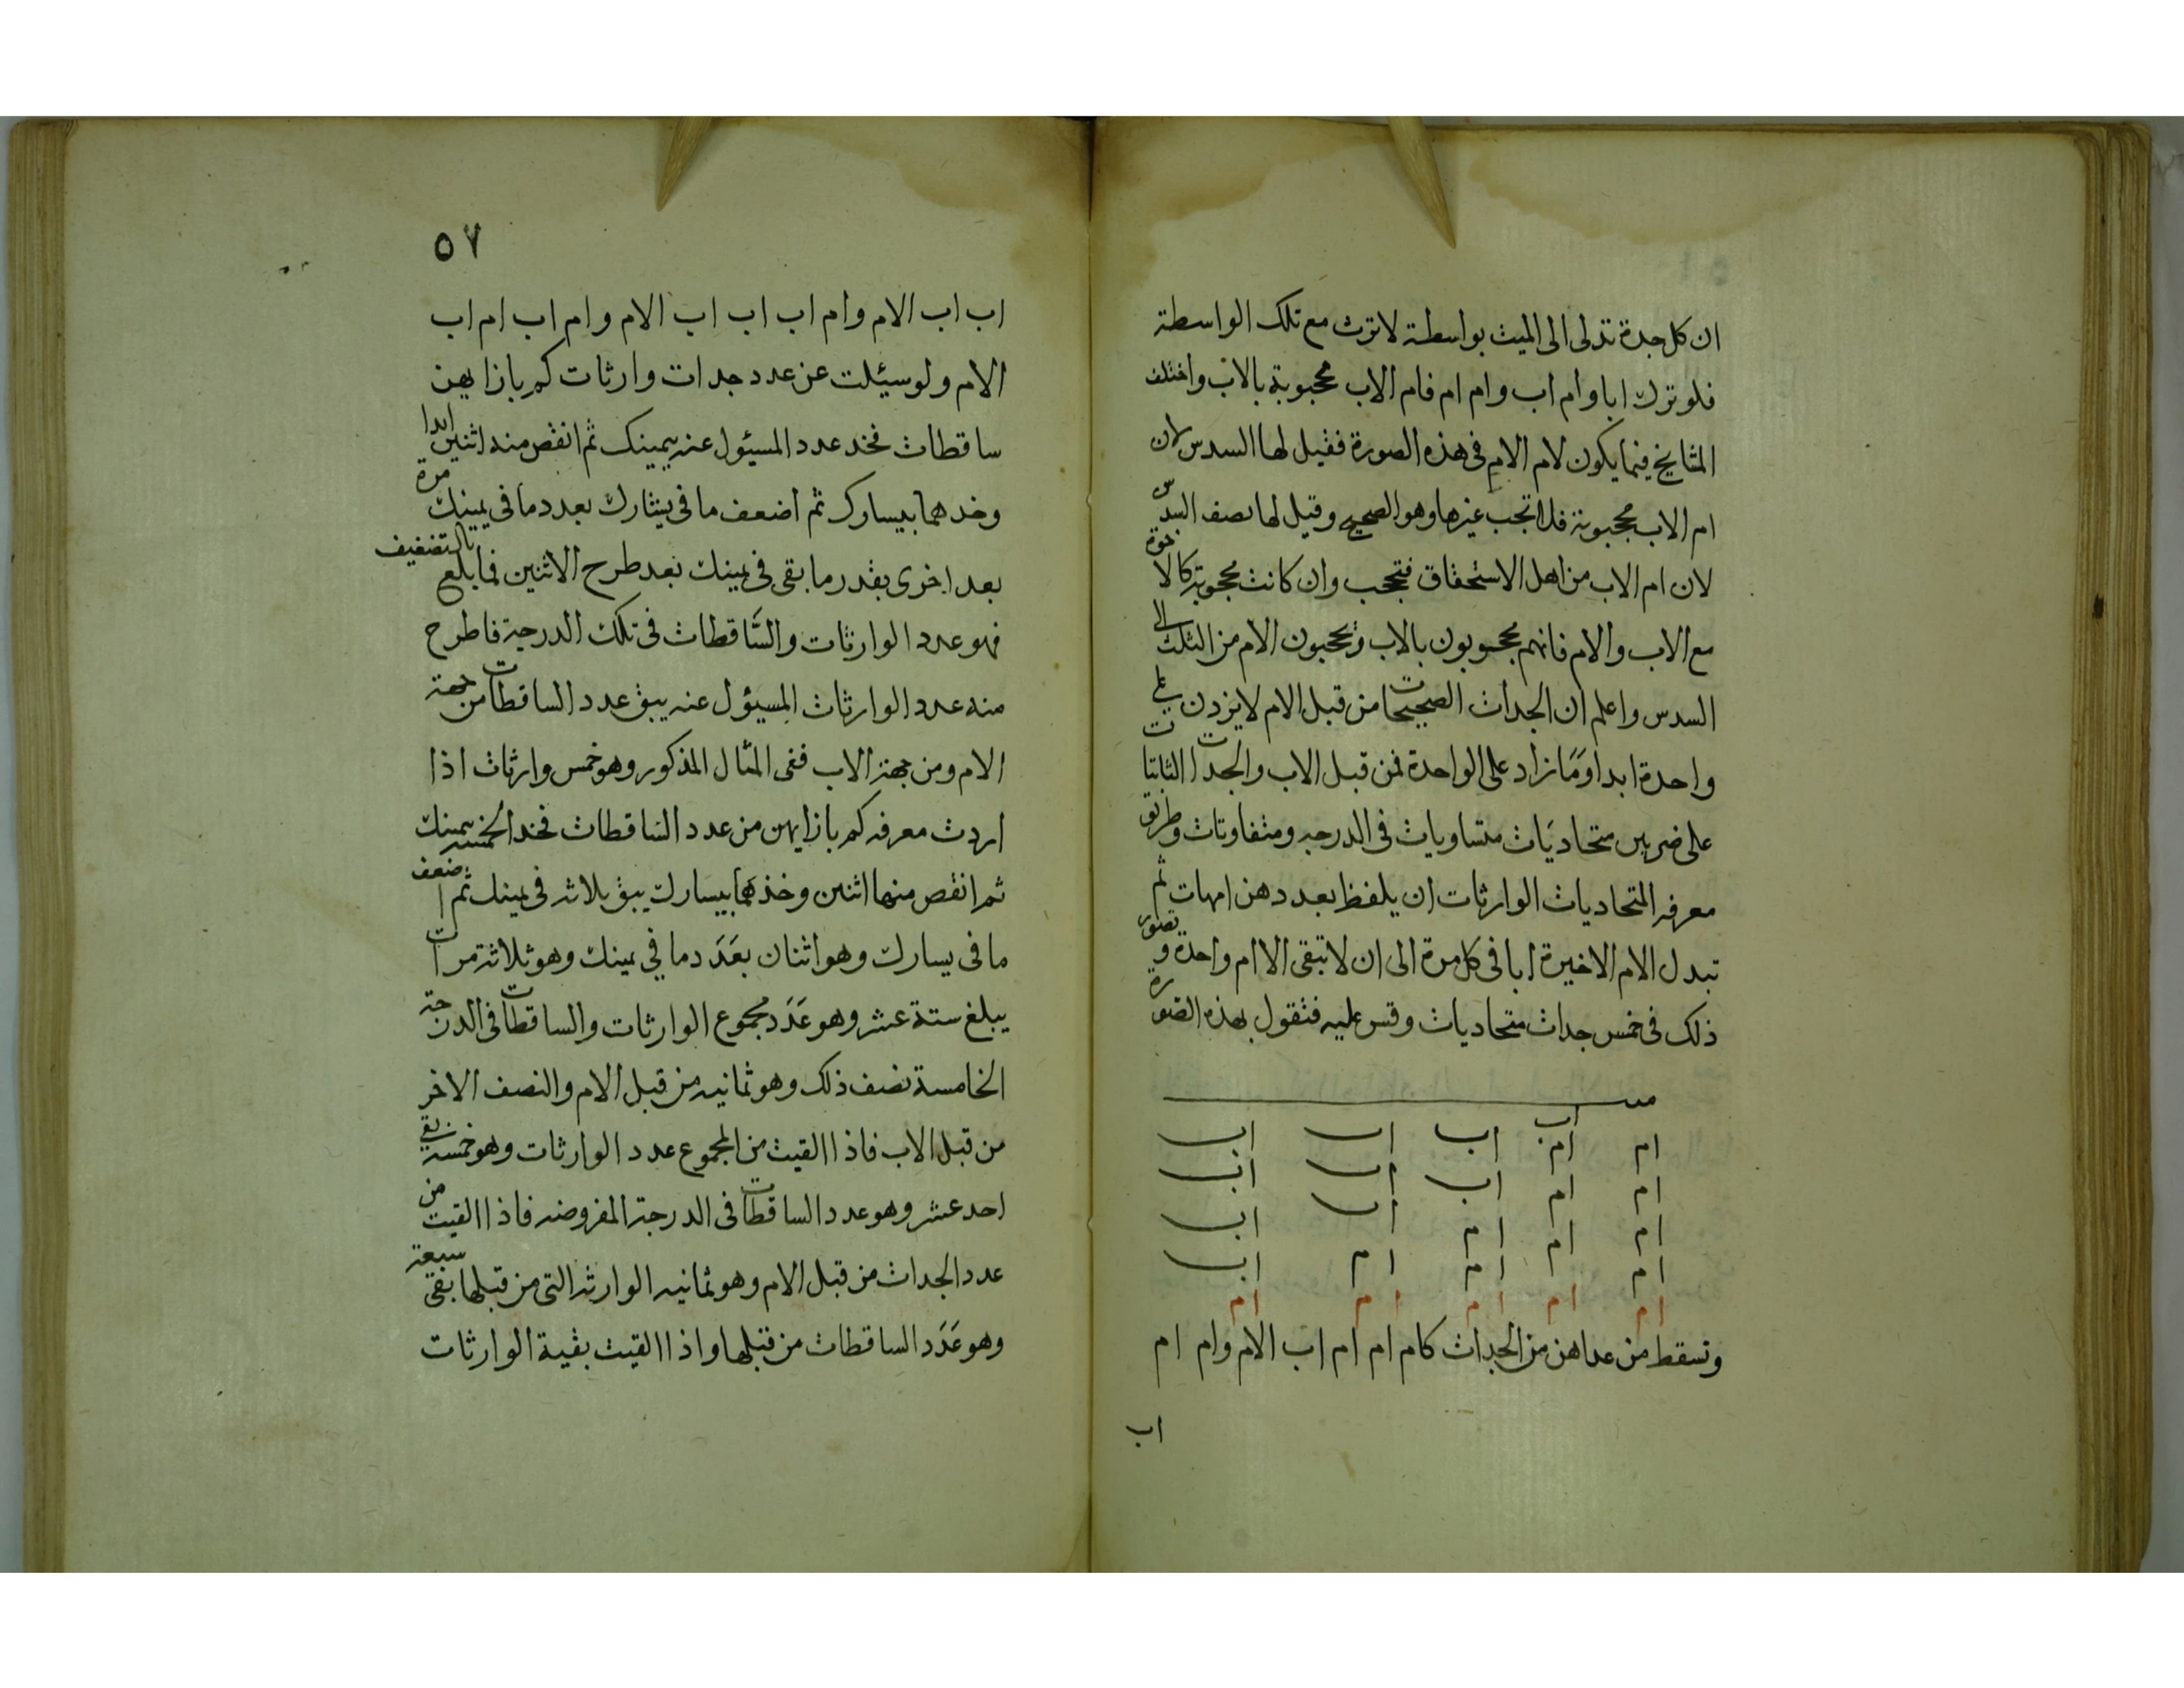 ان كل جدة تدلى الى الميت بواسطة لا ترث مع تلك الواسطة
فلو ترك ابا وام اب وام ام فام الاب محجوبة بالاب واختلف
المشايخ فيما يكون لام الام فى هذه الصورة فقيل لها السدس لان
ام الاب محجوبة فلا تحجب غيرها وهو الصحيح وقيل لها نصف السدس
لان ام الاب من اهل الاستحقاق فتحجب وان كانت محجوبة كالاخوة
مع الاب والام فانهم محجوبون بالاب ويحجبون الام من الثلث الى
السدس واعلم ان الجدات الصحيحات من قبل الام لا يزدن على
واحدة ابدا وما زاد على الواحدة فمن قبل الاب والجدات الثابتات
على ضربين متحاديات متساويات فى الدرجه ومتفاوتات وطريق
معرفه المتحاديات الوارثات ان يلفظ بعددهن امهات ثم
تبدل الام الاخيرة ابا فى كل مرة الى ان لا تبقى الا ام واحدة وتصور
ذلك فى خمس جدات متحاديات وقس عليه فتقول بهذه الصورة
ام ام اب اب اب اب
ام ام اب اب اب
ام ام ام اب اب
ام ام ام ام اب
ام ام ام ام ام
وتسقط من عداهن من الجدات كام ام ام اب الام وام ام
اب
٥٧
اب اب الام وام اب اب اب الام وام اب ام اب
الام ولو سيئلت عن عدد جدات وارثات كم بازايهن
ساقطات فخد عدد المسيئول عنه بيمينك ثم انقص منه اثنين ابدا
وخدهما بيسارك ثم اضعف ما فى يسارك بعدد ما فى يمينك مرة
بعد اخرى بقدر ما بقى فى يمينك بعد طرح الاثنين فما بلغ بالتضعيف
فهو عدد الوارثات والساقطات فى تلك الدرجة فاطرح
منه عدد الوارثات المسيئول عنه يبق عدد الساقطات من جهة
الام ومن جهة الاب ففى المثال المذكور وهو خمس وارثات اذا
اردت معرفه كم بازايهن من عدد الساقطات فخد الخمسه بيمينك
ثم انقص منها اثنين وخذهما بيسارك يبق ثلاثه فى يمينك ثم اضعف
ما فى يسارك وهو اثنان بعدد ما في يمينك وهو ثلاثة مرات
يبلغ ستة عشر وهو عدد مجموع الوارثات والساقطات فى الدرجة
الخامسة نصف ذلك وهو ثمانيه من قبل الام والنصف الاخر
من قبل الاب فاذا القيت من المجموع عدد الوارثات وهو خمسه بقى
احد عشر وهو عدد الساقطات فى الدرجة المفروضه فاذا القيت من
عدد الجدات من قبل الام وهو ثمانيه الوارثه التى من قبلها بقى سبعة
وهو عدد الساقطات من قبلها واذا القيت بقية الوارثات